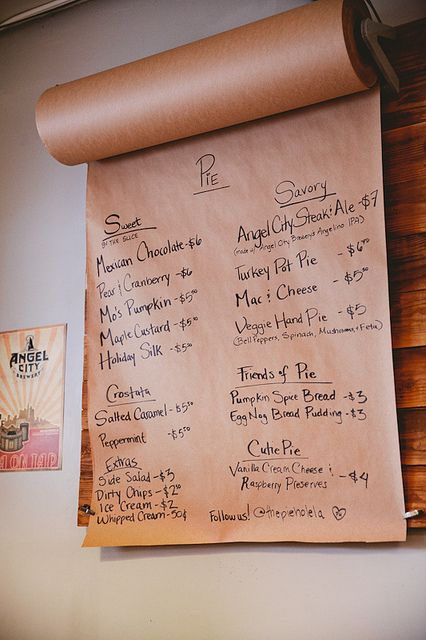 Pie
Sweet
BY THE SLICE
Mexican Chocolate - $6
Pear & Cranberry - $6
Mo's Pumpkin - $5⁰⁰
Maple Custard - $5⁵⁰
Holiday Silk - $5⁵⁰
Crostata
Salted Caramel - $5⁵⁰
Peppermint - $5⁵⁰
Extras
Side Salad - $3
Dirty Chips - $2⁰⁰
Ice Cream - $2
Whipped Cream - 50¢
Savory
Angel City Steak & Ale - $7
(made w/ Angel City Brewery's Angelino IPA)
Turkey Pot Pie - $6⁵⁰
Mac & Cheese - $5⁵⁰
Veggie Hand Pie - $5
(Bell Peppers, Spinach, Mushrooms + Feta)
Friends of Pie
Pumpkin Spice Bread - $3
Egg Nog Bread Pudding - $3
Cutie Pie
Vanilla Cream Cheese &
Raspberry Preserves - $4
Follow us! @thepieholela
ANGEL
CITY
BREWERY